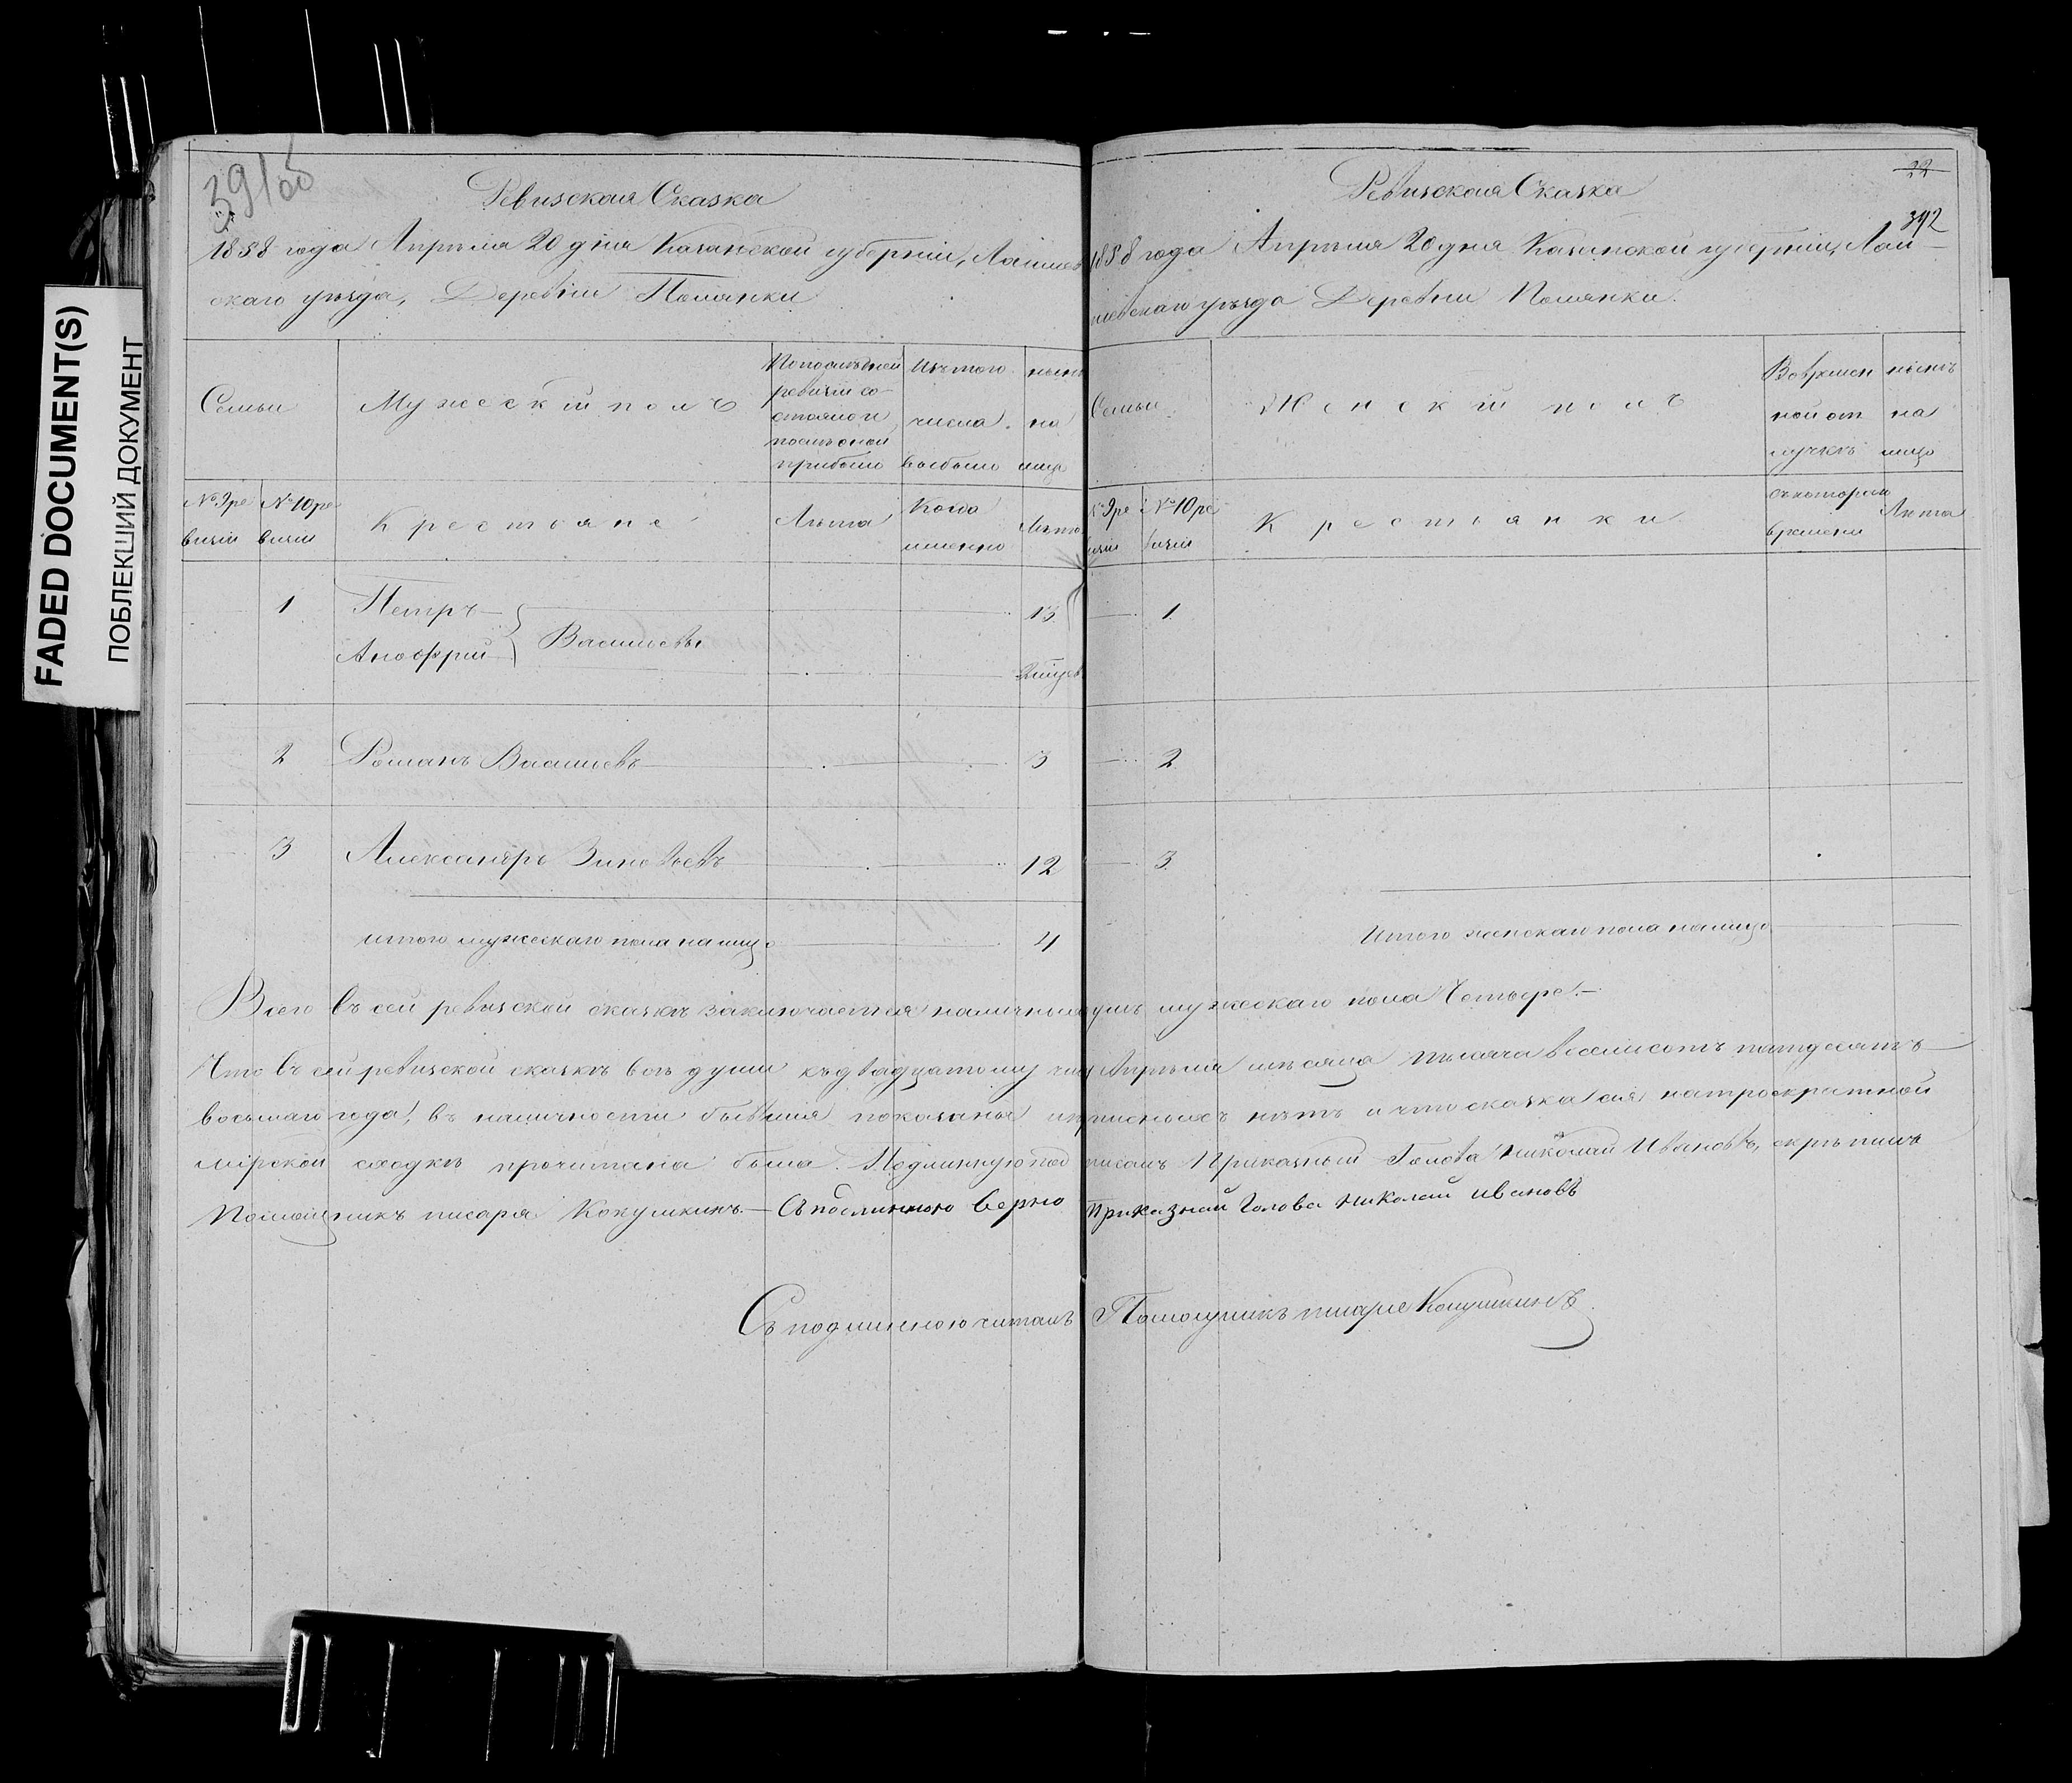 FADED DOCUMENT(S)
ПОБЛЕКШИЙ ДОКУМЕНТ
391об
Ревизская Сказка
1858 года Апрѣля 20 дня Казанской губерніи, Лаишев
скаго уѣзда, Деревни Полянки
Семьи
Мужескій полъ
По последней
ревизіи со-
стояло и
после оной
прибыло
Изъ того
числа
выбыло
нынѣ
на
лицо
№ 9 ре
визіи
№ 10 ре
визіи
Крестьяне
Лѣта
Когда
именно
Лѣта
1 Петръ 13
Анофрий } Васильевы
2 Романъ Васильевъ 3
3 Александръ Зиновьевъ 12
итого мужескаго пола на лицо 4
22
392
Ревизская Сказка
1858 года Апрѣля 20 дня Казанской губерніи, Лаи-
шевскаго уѣзда Деревни Полянки.
Семьи
Женскій полъ
Во времен
ной от
лучкѣ
нынѣ
на
лицо
№ 9 ре
визіи
№ 10 ре
визіи
Крестьянки
съ котораго
времени
Лѣта
1.
2
3.
Итого женскаго пола на лицо
Всего въ сей ревизской сказкѣ заключается наличныхъ душъ мужескаго пола Четыре.—
Что въ сей ревизской сказкѣ всѣ души къ двадцатому чис. Апрѣля мѣсяца тысяча восемьсотъ пятдесятъ
восьмаго года, въ наличности бывшія показаны и прписныхъ нѣтъ и что сказка сія на троекратной
мірской сходкѣ прочитана была. Подлинную подписалъ Приказный Голова Николай Ивановъ, скрѣпилъ
Помощникъ писаря Кокушкинъ.— Съ подлинною верно Приказнай Голова Николай Ивановъ
Съ подлинною читалъ Помощникъ писаря Кокушкинъ